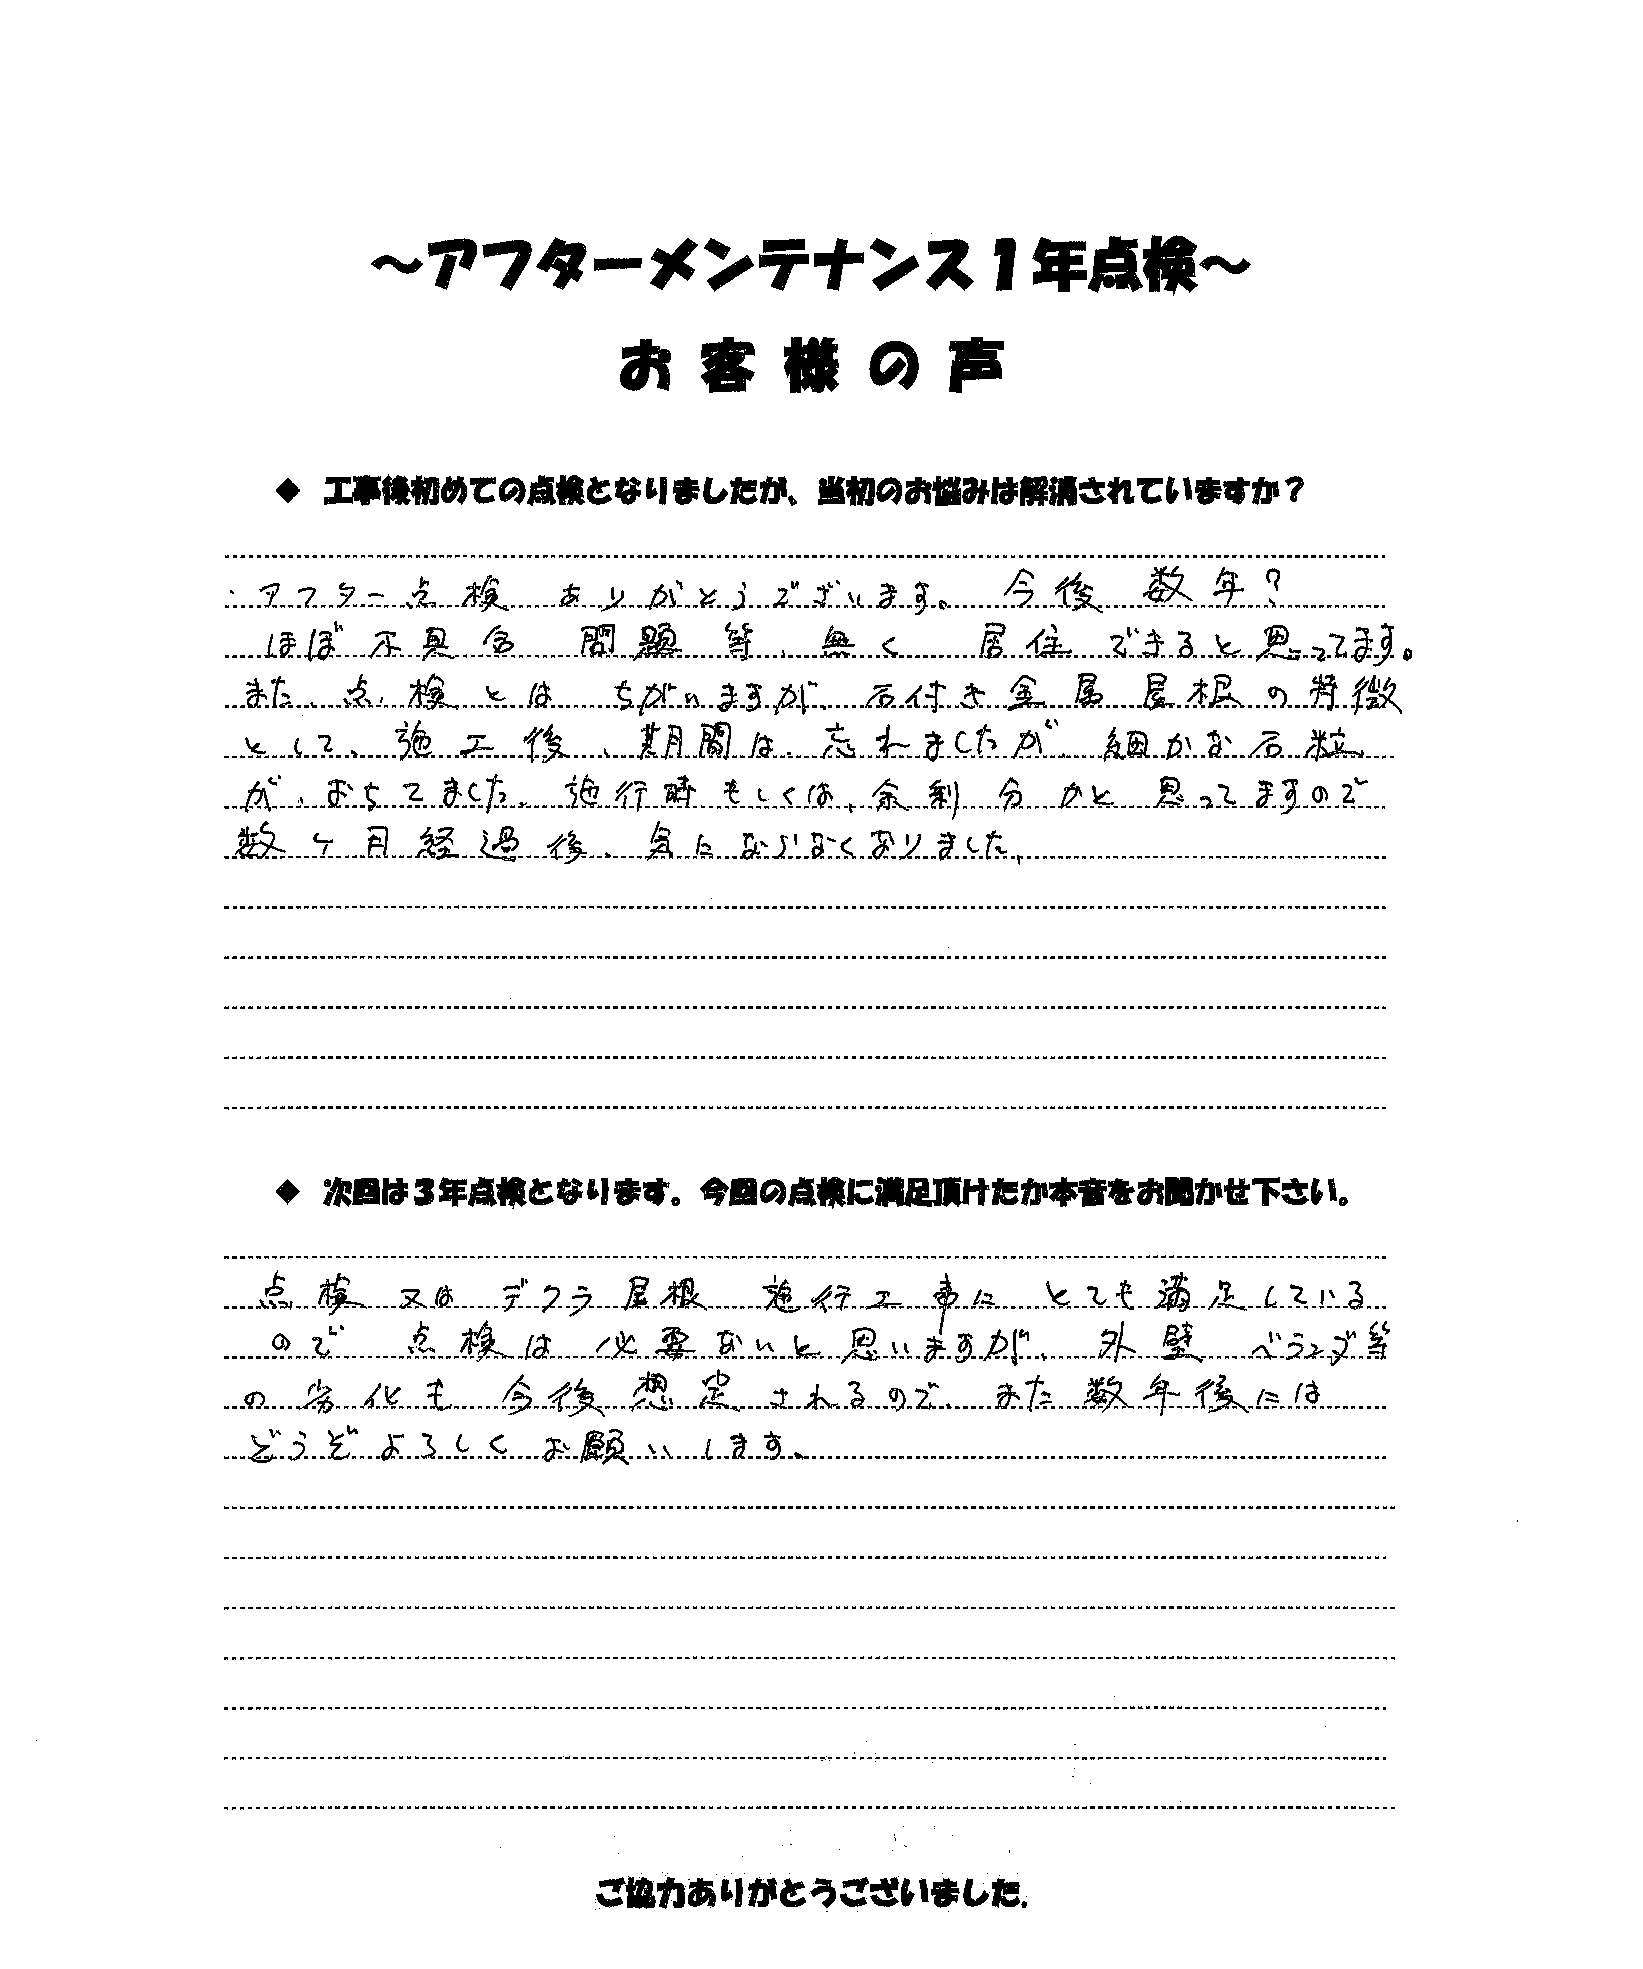 ～アフターメンテナンス１年点検～
お客様の声
◆ 工事後初めての点検となりましたが、当初のお悩みは解消されていますか？
・アフター点検 ありがとうございます。 今後 数年？
ほぼ 不具合 問題 等、無く 居住 できると思ってます。
また、点検とは ちがいますが、石付き金属屋根の特徴
として、施工後、期間は、忘れましたが、細かな石粒
が、おちてました。施行時もしくは、余剰分かと思ってますので
数ヶ月経過後、気にならなくなりました。
◆ 次回は３年点検となります。今回の点検に満足頂けたか本音をお聞かせ下さい。
点検又は デクラ屋根 施行工事に とても満足している
ので 点検は 必要ないと思いますが、外壁 ベランダ等
の 劣化も 今後 想定されるので、また数年後には
どうぞよろしく お願いします。
ご協力ありがとうございました。